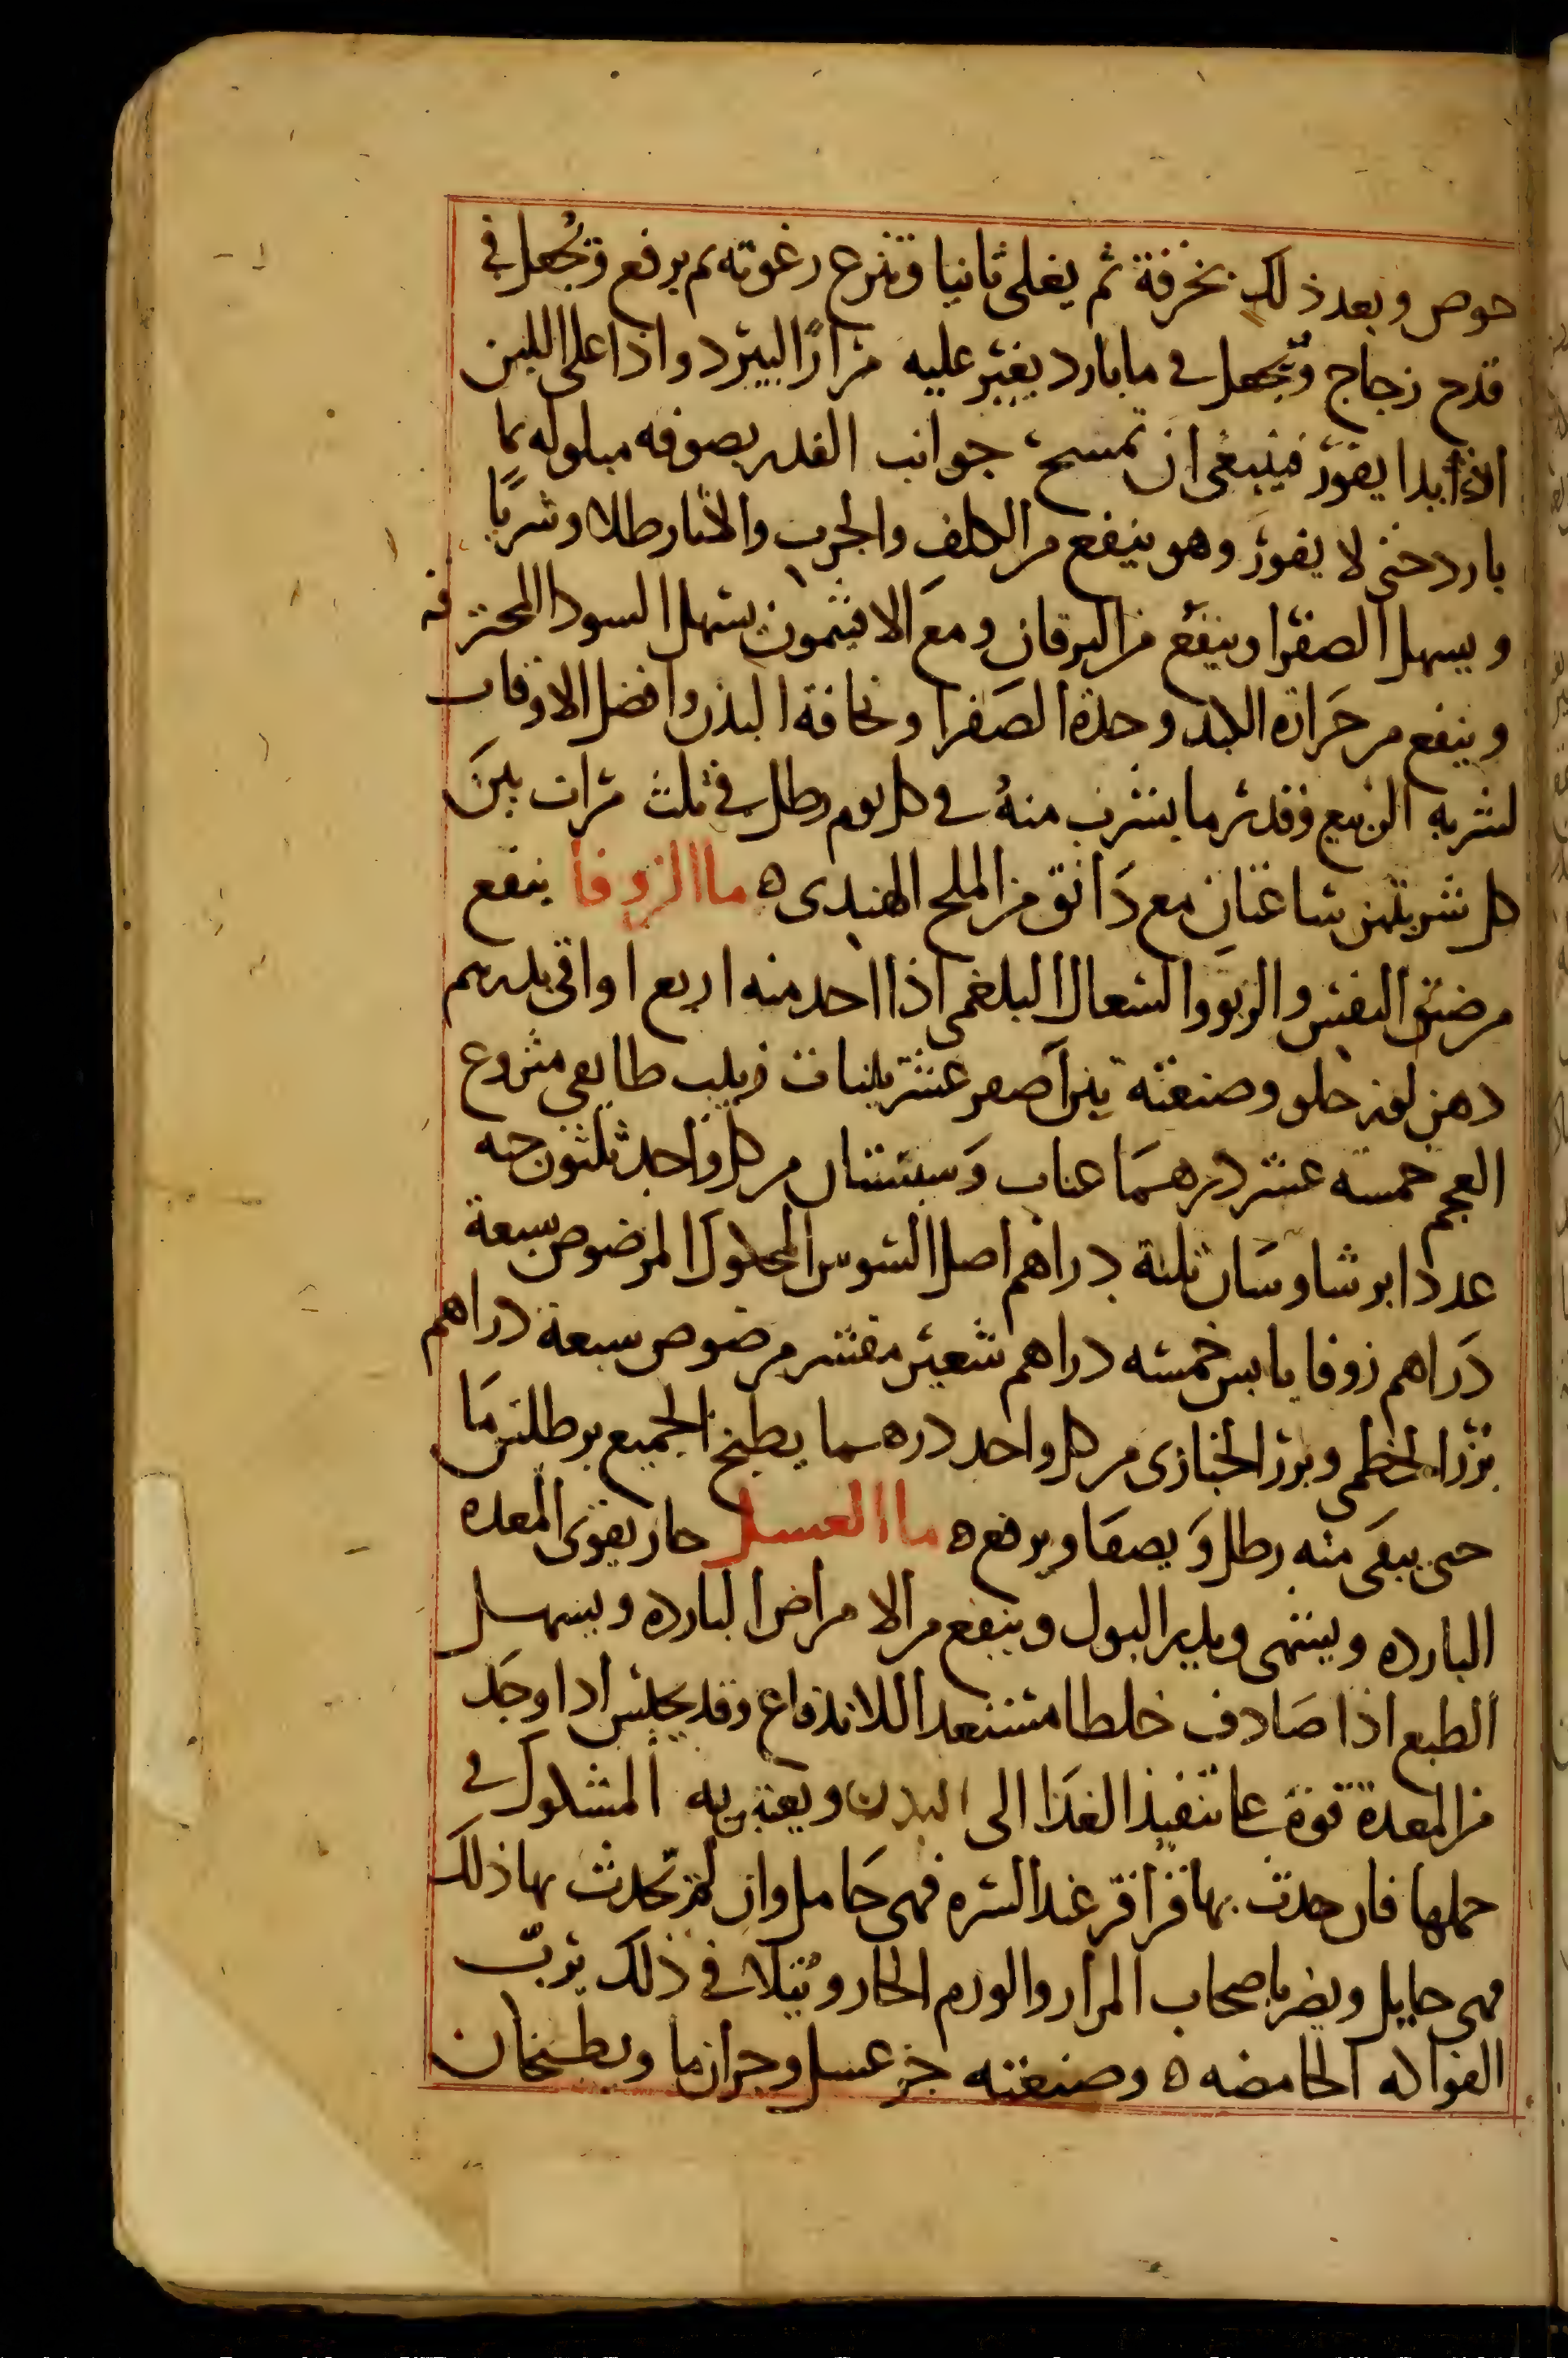 خوص وبعد ذلك بخرقة ثم يغلى ثانيا وتنزع رغوته ثم يرفع ويجعل في
قدح زجاج ويجعل في ما بارد يغير عليه مرارًا ليبرد واذا غلى اللبن
ابدا يفور فينبغى ان تمسح جوانب القدر بصوفه مبلوله بما
بارد حتى لا يفور وهو ينفع من الكلف والجرب والاثار طلا وشربًا
ويسهل الصفرا وينفع من اليرقان ومع الافيثمون يسهل السودا المحترقه
وينفع من حرارة الكبد وحدة الصفرا ونحافة البدن وافضل الاوقات
لشربه الربيع وقدر ما يشرب منه في كل يوم رطل في ثلث مرات بين
كل شربتين ساعتان مع دانق من الملح الهندى ه ما الزوفا ينفع
من ضيق النفس والربو والسعال البلغمى اذا اخذ منه اربع اواقى بدرهم
دهن لوز حلو وصنعته تين اصفر عشر تينات زبيب طايفي منزوع
العجم خمسه عشر درهما عناب وسبستان من كل واحد ثلثون حبه
عددا برشاوسان ثلثة دراهم اصل السوس المحكوك المرضوض سبعة
دراهم زوفا يابس خمسه دراهم شعير مقشر مرضوض سبعة دراهم
بزر الخطمى وبزر الخبازى من كل واحد درهما يطبخ الجميع برطلين ما
حتى يبقى منه رطل ويصفا ويرفع ه ما العسل حار يقوى المعده
البارده ويشهى ويدر البول وينفع من الامراض البارده ويسهل
الطبع اذا صادف خلطا مستعدا للاندفاع وقد يحبس اذا وجد
من المعدة قوة على تنفيذ الغذا الى البدن ويعتبر به المشكوك في
حملها فان حدث بها قراقر عند السره فهى حامل وان لم تحدث بها ذلك
فهى حايل ويضر باصحاب المرار والورم الحار ويتلافى ذلك برب
الفواكه الحامضه ه وصنعته جز عسل وجزان ما ويطبخان